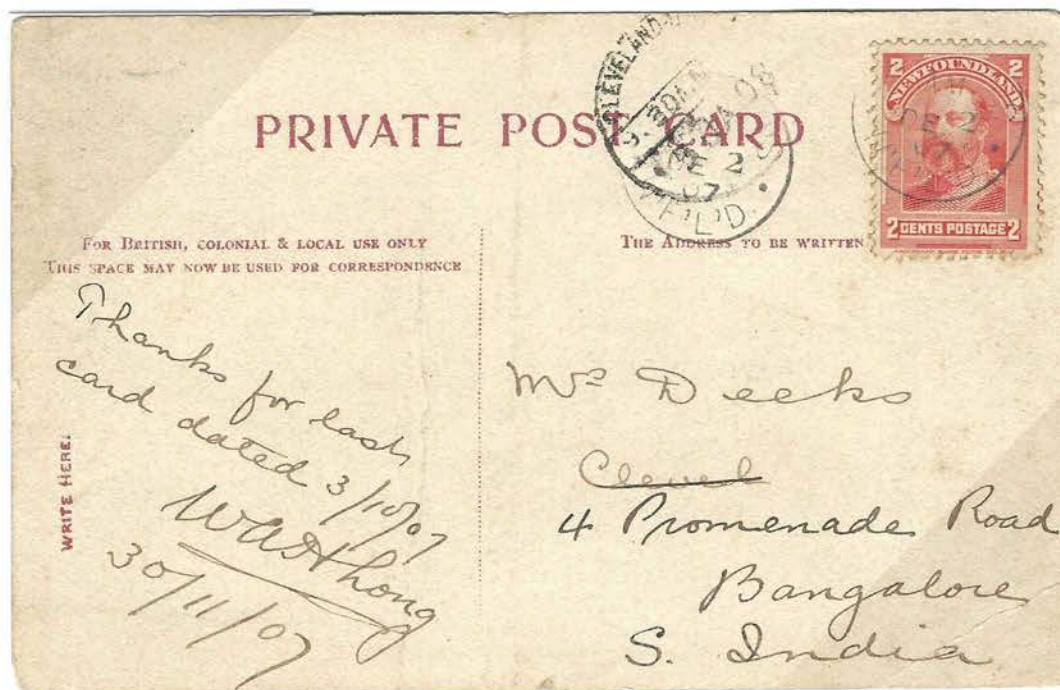 PRIVATE POST CARD
2 NEWFOUNDLAND 2
2 CENTS POSTAGE 2
CLEVELAND
SE 2
07
N.F.L'D.
SE 2
07
FOR BRITISH, COLONIAL & LOCAL USE ONLY
THIS SPACE MAY NOW BE USED FOR CORRESPONDENCE
THE ADDRESS TO BE WRITTEN
WRITE HERE.
Thanks for last
card dated 3/10/07
30/11/07
Mrs Deeks
Clevel
4 Promenade Road
Bangalore
S. India